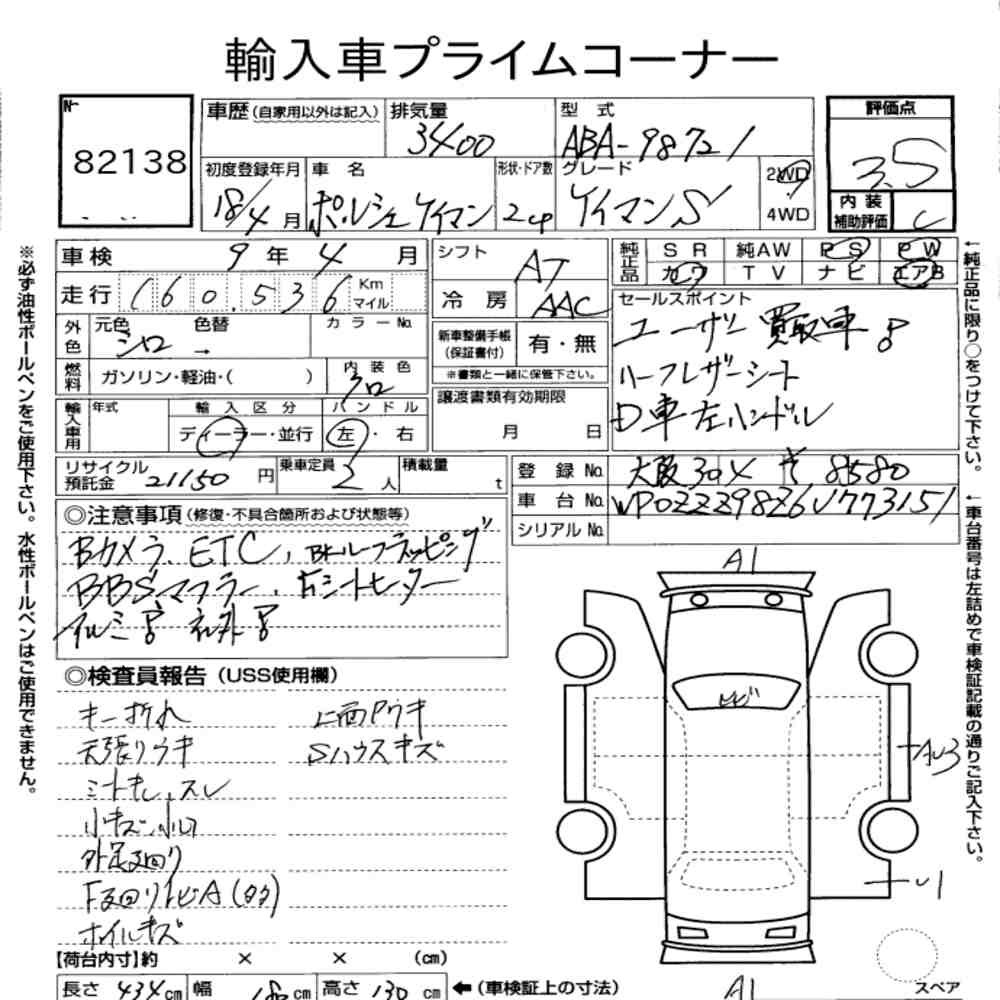 輸入車プライムコーナー
No.
82138
車歴(自家用以外は記入)
排気量
3400
型式
ABA-98721
評価点
3.5
初度登録年月
18/4月
車名
ポルシェケイマン
形状・ドア数
2cp
グレード
ケイマンS
2WD
4WD
内装
補助評価
C
車検 9年4月
走行 160.536 Km
マイル
シフト
AT
冷房
AAC
純正品
SR 純AW PS PW
カワ TV ナビ エアB
外色
元色 色替 カラーNo.
シロ →
燃料
ガソリン・軽油・( )
内装色
クロ
新車整備手帳
(保証書付)
有・無
※書類と一緒に保管下さい。
セールスポイント
ユーザー買取車
ハーフレザーシート
D車左ハンドル
輸入車用
年式
輸入区分
ディーラー・並行
ハンドル
左・右
譲渡書類有効期限
月 日
リサイクル
預託金
21150円
乗車定員
2人
積載量
t
登録No. 大阪 8580
車台No. WP0ZZZ98Z6U773151
シリアルNo.
◎注意事項(修復・不具合箇所および状態等)
Bカメラ、ETC、ルーフラッピング
BBSマフラー、シートヒーター
イルミ 社外
◎検査員報告(USS使用欄)
キー折れ
上面Pウキ
天張りウキ
Sハウスキズ
ミラーキレ、スレ
小キズ、小凹
外足廻り
F廻りトビA(タク)
ホイルキズ
A1
トビ
AU3
U1
A1
スペア
【荷台内寸】約 × × (cm)
長さ 434cm 幅 180cm 高さ 130cm ←(車検証上の寸法)
※必ず油性ボールペンをご使用下さい。水性ボールペンはご使用できません。
←純正品に限り○をつけて下さい。
←車台番号は左詰めで車検証記載の通りご記入下さい。